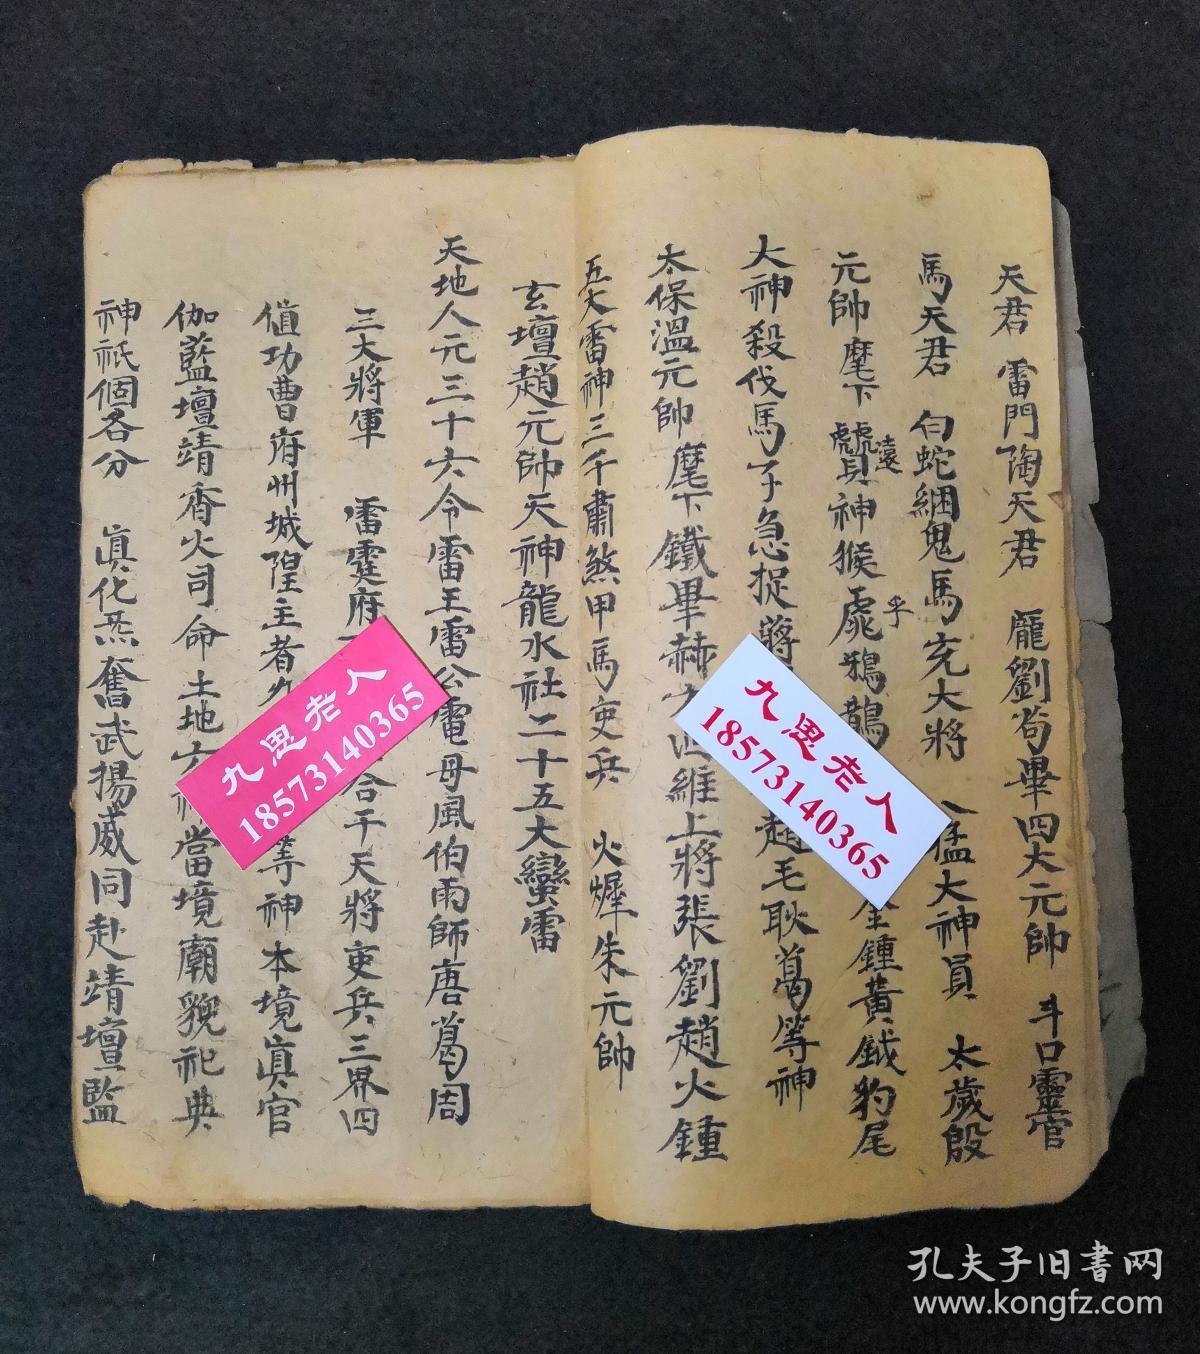 天君 雷門陶天君 龐劉茍畢四大元帥 斗口靈官
馬天君 白蛇綑鬼馬充大將 八猛大神員 太歲殷
元帥麾下 神猴 鴉 金鍾黃鉞豹尾
遠
乎
大神殺伐馬子急捉蔣 趙毛耿葛等神
太保溫元帥麾下鐵畢赫 四維上將張劉趙火鍾
五大雷神三千肅煞甲馬吏兵 火犀朱元帥
玄壇趙元帥天神龍水社二十五大蠻雷
天地人元三十六令雷王雷公電母風伯雨師唐葛周
三大將軍 雷霆府 合千天將吏兵三界四
值功曹府州城隍主者 等神本境眞官
伽藍壇靖香火司命土地六 當境廟貌祀典
神祇個各分 眞化炁奮武揚威同赴靖壇監
九思老人
18573140365
九思老人
18573140365
孔夫子旧书网
www.kongfz.com